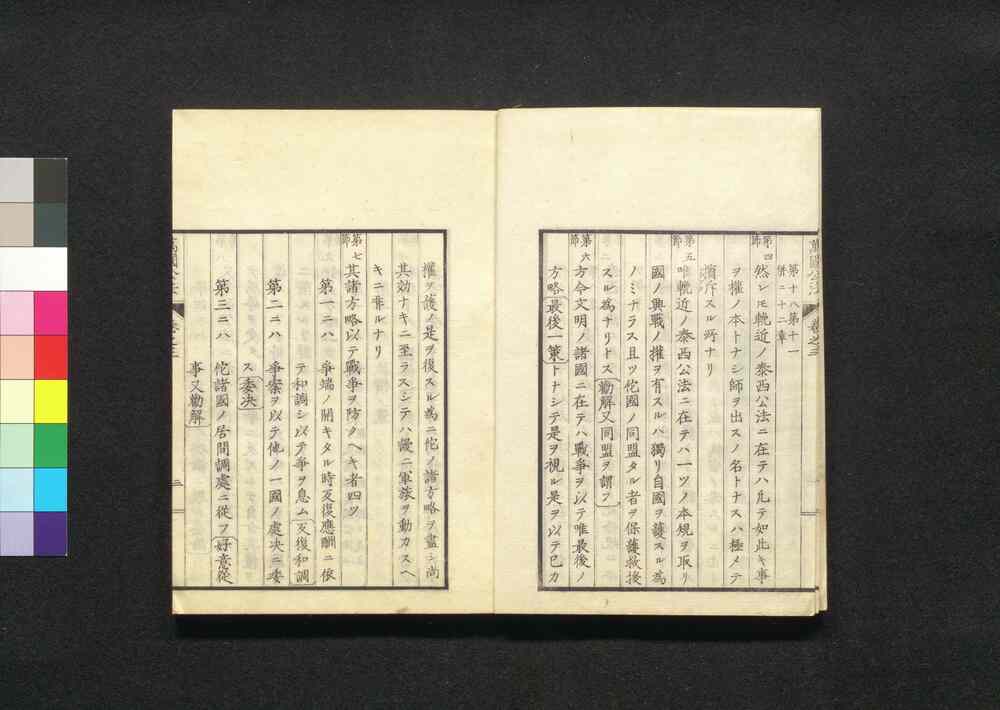 萬國公法
卷之三
第十八第十一
併二十二章
第四節
然シ𪜈輓近ノ泰西公法ニ在テハ凡テ如此キ事
ヲ權ノ本トナシ師ヲ出スノ名トナスハ極メテ
擯斥スル所ナリ
第五節
唯輓近ノ泰西公法ニ在テハ一ツノ本規ヲ取リ
國ノ興戰ノ權ヲ有スルハ獨リ自國ヲ護スル為
ノミナラス且ツ佗國ノ同盟タル者ヲ保護救援
スル為ナリトス勸解又同盟ヲ謂フ
第六節
方今文明ノ諸國ニ在テハ戰爭ヲ以テ唯最後ノ
方略最後一策トナシテ是ヲ視ル是ヲ以テ已カ
權ヲ護ノ是ヲ復スル為ニ佗ノ諸方略ヲ盡シ尚
其効ナキニ至ラスシテハ謾ニ軍旅ヲ動カスヘ
キニ非ルナリ
第七節
其諸方略以テ戰爭ヲ防クヘキ者四ツ
第一ニハ 爭端ノ開キタル時反復應酬ニ依
テ和調シ以テ爭ヲ息ム反復和調
第二ニハ 爭案ヲ以テ他ノ一國ノ處决ニ委
ス委决
第三ニハ 佗諸國ノ居間調處ニ從フ好意從
事又勸解
萬國公法
卷之三
二